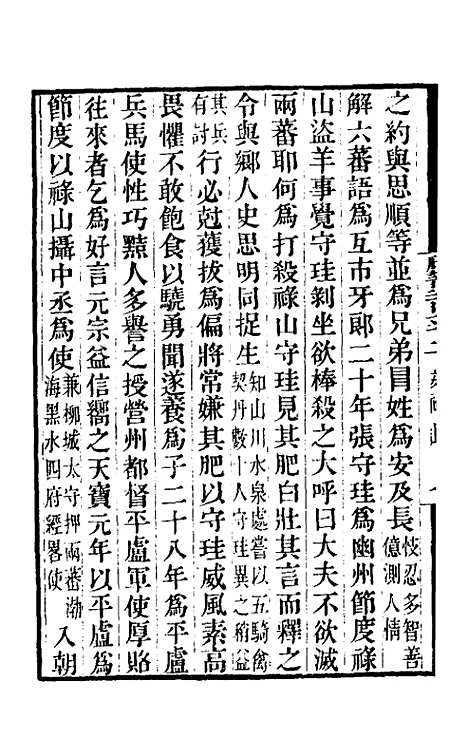 之約與思順等並爲兄弟冒姓爲安及長忮忍多智善億測人情
解六蕃語爲互市牙郎二十年張守珪爲幽州節度祿
山盜羊事覺守珪剝坐欲棒殺之大呼曰大夫不欲滅
兩蕃耶何爲打殺祿山守珪見其肥白壯其言而釋之
令與鄉人史思明同捉生知山川水泉處嘗以五騎禽契丹數十人守珪異之稍益
其兵有討行必尅獲拔爲偏將常嫌其肥以守珪威風素高
畏懼不敢飽食以驍勇聞遂養爲子二十八年爲平盧
兵馬使性巧黠人多譽之授營州都督平盧軍使厚賂
往來者乞爲好言元宗益信嚮之天寶元年以平盧爲
節度以祿山攝中丞爲使兼柳城太守押兩蕃渤海黑水四府經畧使入朝